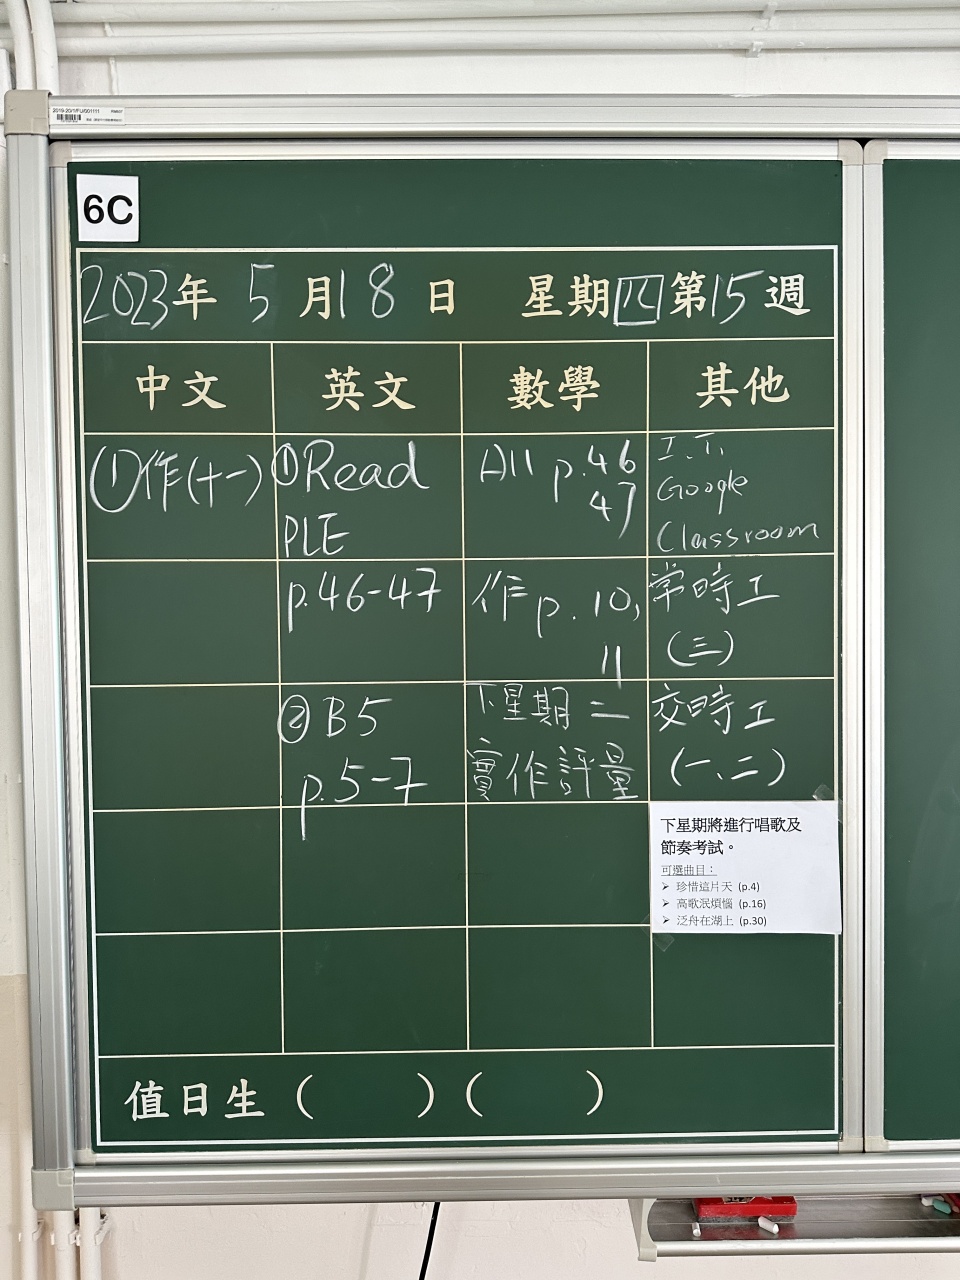 2019-20/1/FU/001111
6C
2023年 5月18日 星期四 第15週
中文 英文 數學 其他
(1)作(十一)
①Read
PLE
p.46-47
②B5
p.5-7
All p.46
47
作 p.10,
11
下星期二
實作評量
I.T.
Google
Classroom
常時工
(三)
交時工
(一、二)
下星期將進行唱歌及
節奏考試。
可選曲目：
➢ 珍惜這片天 (p.4)
➢ 高歌泯煩惱 (p.16)
➢ 泛舟在湖上 (p.30)
值日生 (　　) (　　)